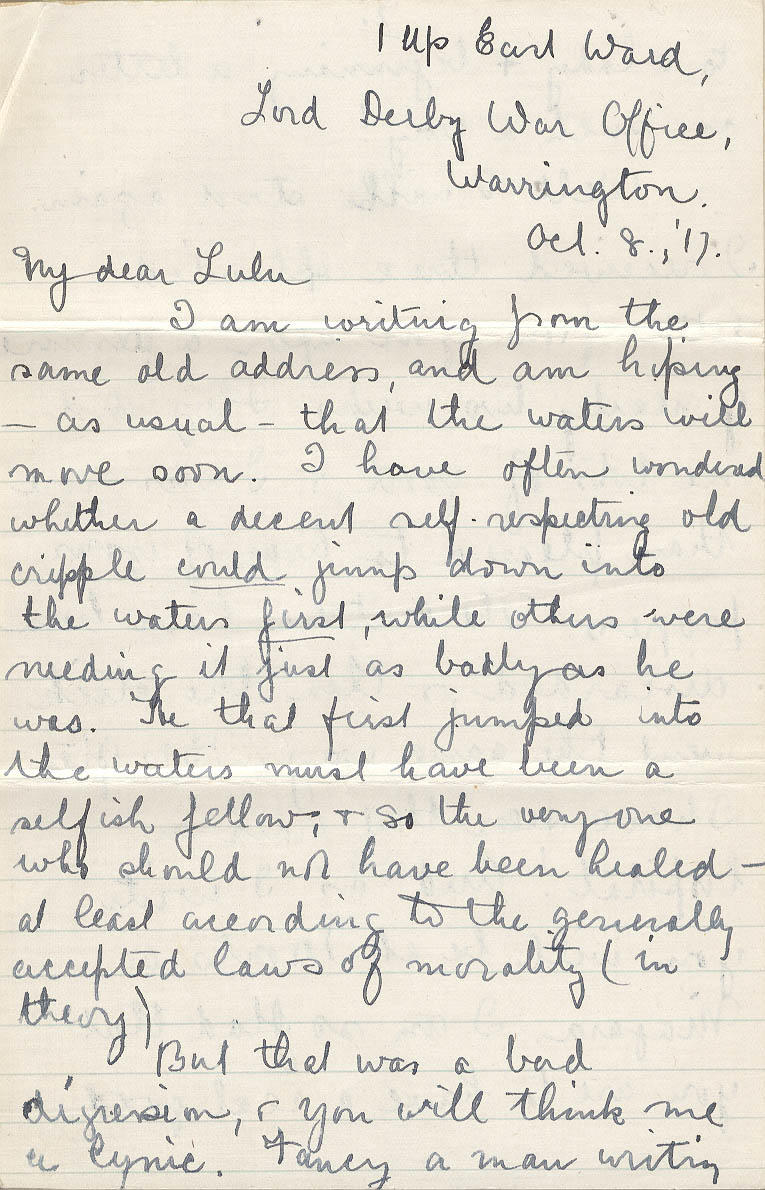 1 Up East Ward,
Lord Derby War Office,
Warrington.
Oct. 8., '17.
My dear Lulu
I am writing from the
same old address, and am hoping
— as usual — that the waters will
move soon. I have often wondered
whether a decent self-respecting old
cripple could jump down into
the waters first, while others were
needing it just as badly as he
was. He that first jumped into
the waters must have been a
selfish fellow; + so the very one
who should not have been healed —
at least according to the generally
accepted laws of morality (in
theory)
But that was a bad
digression, + you will think me
a cynic. Fancy a man writing